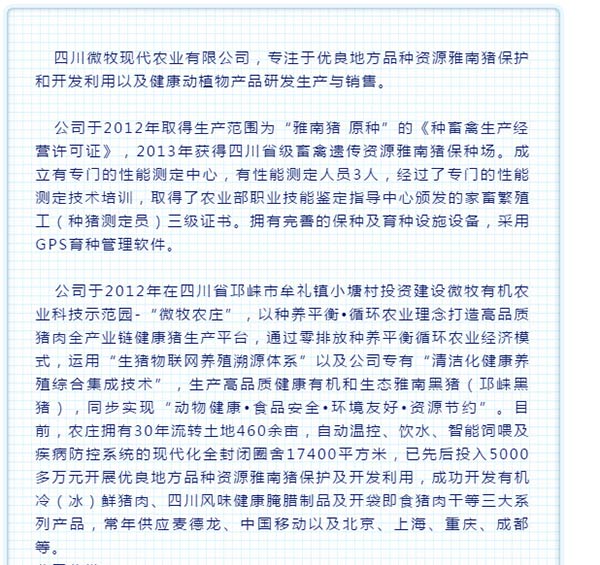 四川微牧现代农业有限公司，专注于优良地方品种资源雅南猪保护
和开发利用以及健康动植物产品研发生产与销售。
公司于2012年取得生产范围为“雅南猪 原种”的《种畜禽生产经
营许可证》，2013年获得四川省级畜禽遗传资源雅南猪保种场。成
立有专门的性能测定中心，有性能测定人员3人，经过了专门的性能
测定技术培训，取得了农业部职业技能鉴定指导中心颁发的家畜繁殖
工（种猪测定员）三级证书。拥有完善的保种及育种设施设备，采用
GPS育种管理软件。
公司于2012年在四川省邛崃市牟礼镇小塘村投资建设微牧有机农
业科技示范园-“微牧农庄”，以种养平衡•循环农业理念打造高品质
猪肉全产业链健康猪生产平台，通过零排放种养平衡循环农业经济模
式，运用“生猪物联网养殖溯源体系”以及公司专有“清洁化健康养
殖综合集成技术”，生产高品质健康有机和生态雅南黑猪（邛崃黑
猪），同步实现“动物健康•食品安全•环境友好•资源节约”。目
前，农庄拥有30年流转土地460余亩，自动温控、饮水、智能饲喂及
疾病防控系统的现代化全封闭圈舍17400平方米，已先后投入5000
多万元开展优良地方品种资源雅南猪保护及开发利用，成功开发有机
冷（冰）鲜猪肉、四川风味健康腌腊制品及开袋即食猪肉干等三大系
列产品，常年供应麦德龙、中国移动以及北京、上海、重庆、成都
等。